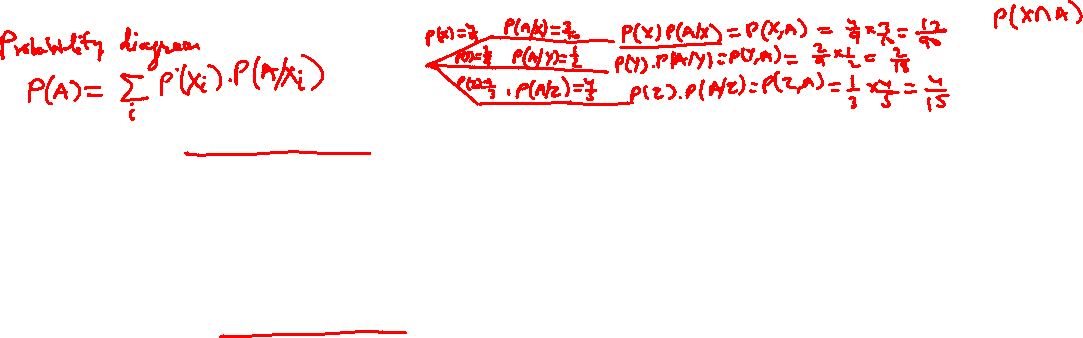 Probability diagram
P(A) = ∑ᵢ P(Xᵢ) · P(A/Xᵢ)
P(A/X) = 3/10 P(X) P(A/X) = P(X,A) = 4/9 × 3/10 = 12/90
P(A/Y) = 1/2 P(Y) · P(A/Y) = P(Y,A) = 2/9 × 1/2 = 2/18
P(A/Z) = 4/5 P(Z) · P(A/Z) = P(Z,A) = 1/3 × 4/5 = 4/15
P(X∩A)